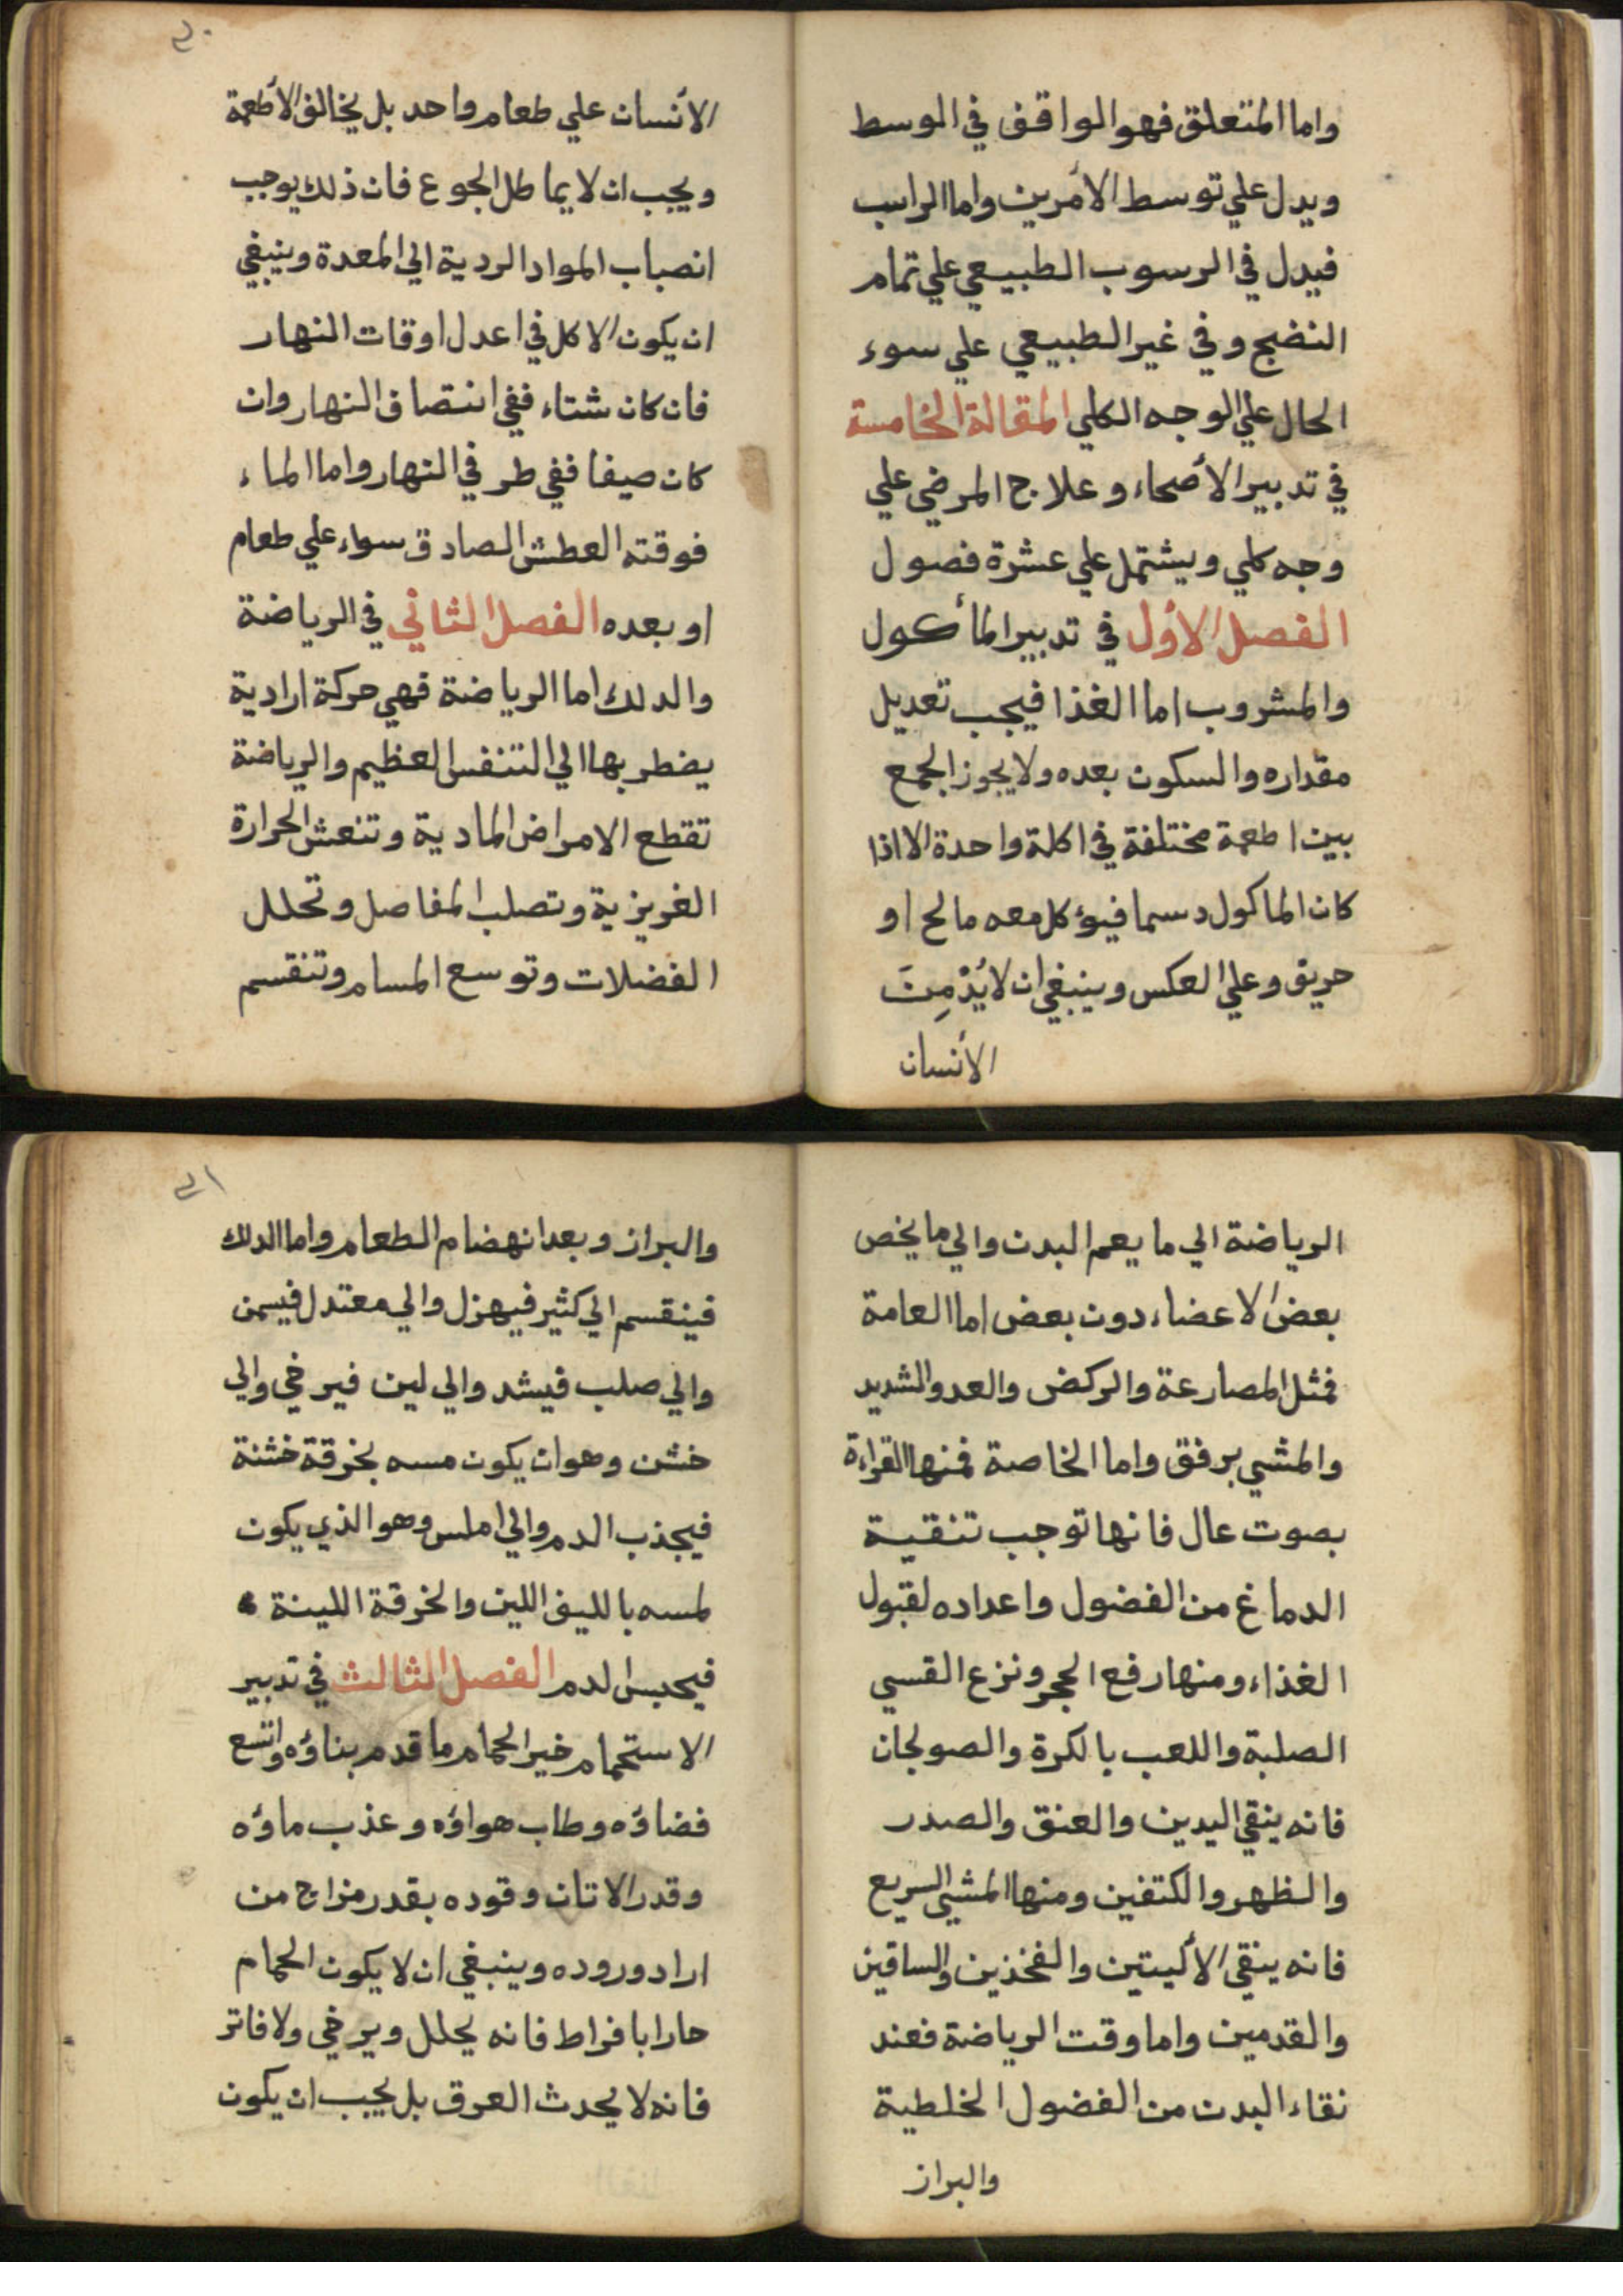 واما المتعلق فهو الواقف في الوسط
ويدل علي توسط الأمرين واما الراسب
فيدل في الرسوب الطبيعي علي تمام
النضج وفي غير الطبيعي علي سوء
الحال علي الوجه الكلي المقالة الخامسة
في تدبير الأصحاء وعلاج المرضي علي
وجه كلي ويشتمل علي عشرة فصول
الفصل الأول في تدبير المأكول
والمشروب اما الغذا فيجب تعديل
مقداره والسكون بعده ولا يجوز الجمع
بين اطعمة مختلفة في اكلة واحدة الا اذا
كان الماكول دسما فيؤكل معه مالح او
حريق وعلي العكس وينبغي ان لا يُدْمِنَ
الأنسان
الأنسان علي طعام واحد بل يخالف الأطعمة
ويجب ان لا يماطل الجوع فان ذلك يوجب
انصباب المواد الردية الي المعدة وينبغي
ان يكون الاكل في اعدل اوقات النهار
فان كان شتاء ففي انتصاف النهار وان
كان صيفا ففي طرفي النهار واما الماء
فوقته العطش الصادق سواء علي طعام
او بعده الفصل الثاني في الرياضة
والدلك اما الرياضة فهي حركة ارادية
يضطر بها الي التنفس العظيم والرياضة
تقطع الامراض المادية وتنعش الحرارة
الغريزية وتصلب المفاصل وتحلل
الفضلات وتوسع المسام وتنقسم
الرياضة الي ما يعم البدن والي ما يخص
بعض الاعضاء دون بعض اما العامة
فمثل المصارعة والركض والعدو الشديد
والمشي برفق واما الخاصة فمنها القراءة
بصوت عال فانها توجب تنقية
الدماغ من الفضول واعداده لقبول
الغذاء ومنها رفع الحجر ونزع القسي
الصلبة واللعب بالكرة والصولجان
فانه ينقي اليدين والعنق والصدر
والظهر والكتفين ومنها المشي السريع
فانه ينقي الأليتين والفخذين والساقين
والقدمين واما وقت الرياضة فعند
نقاء البدن من الفضول الخلطية
والبراز
والبراز وبعد انهضام الطعام واما الدلك
فينقسم الي كثير فيهزل والي معتدل فيسمن
والي صلب فيشد والي لين فيرخي والي
خشن وهو ان يكون مسه بخرقة خشنة
فيجذب الدم والي املس وهو الذي يكون
لمسه بالليف اللين والخرقة اللينة
فيحبس الدم الفصل الثالث في تدبير
الاستحمام خير الحمام ما قدم بناؤه واتسع
فضاؤه وطاب هواؤه وعذب ماؤه
وقدر الاتان وقوده بقدر مزاج من
اراد وروده وينبغي ان لا يكون الحمام
حارا بافراط فانه يحلل ويرخي ولا فاتر
فانه لا يحدث العرق بل يجب ان يكون